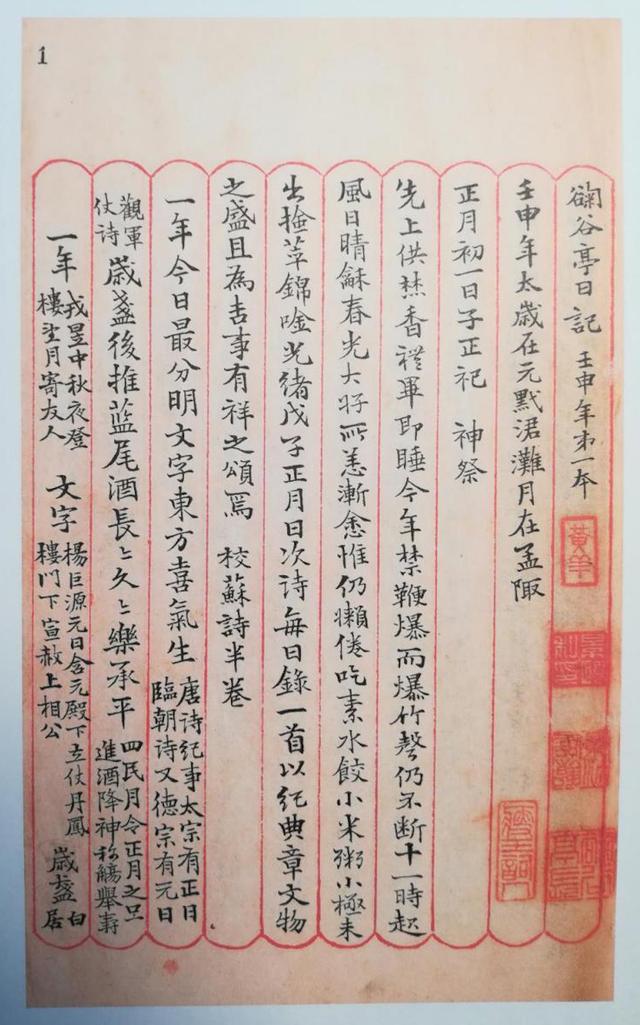 1
蘜谷亭日記 壬申年第一本
黃羊
壬申年太歲在元黓涒灘月在孟陬
正月初一日子正祀 神祭
先上供焚香禮畢即睡今年禁鞭爆而爆竹聲仍不斷十一時起
風日晴龢春光大好所恙漸愈惟仍懶倦吃素水餃小米粥小極未
出撿萃錦唫光緒戊子正月日次詩每日錄一首以紀典章文物
之盛且為吉事有祥之頌焉 校蘇詩半卷
一年今日最分明文字東方喜氣生 唐詩紀事太宗有正日
臨朝詩又德宗有元日
觀軍
仗詩 歲盞後推藍尾酒長〻久〻樂承平 四民月令正月之旦
進酒降神称觴舉壽
一年 戎昱中秋夜登
樓望月寄友人 文字 楊巨源元日含元殿下立仗丹鳳
樓門下宣赦上相公 歲盞 白
居